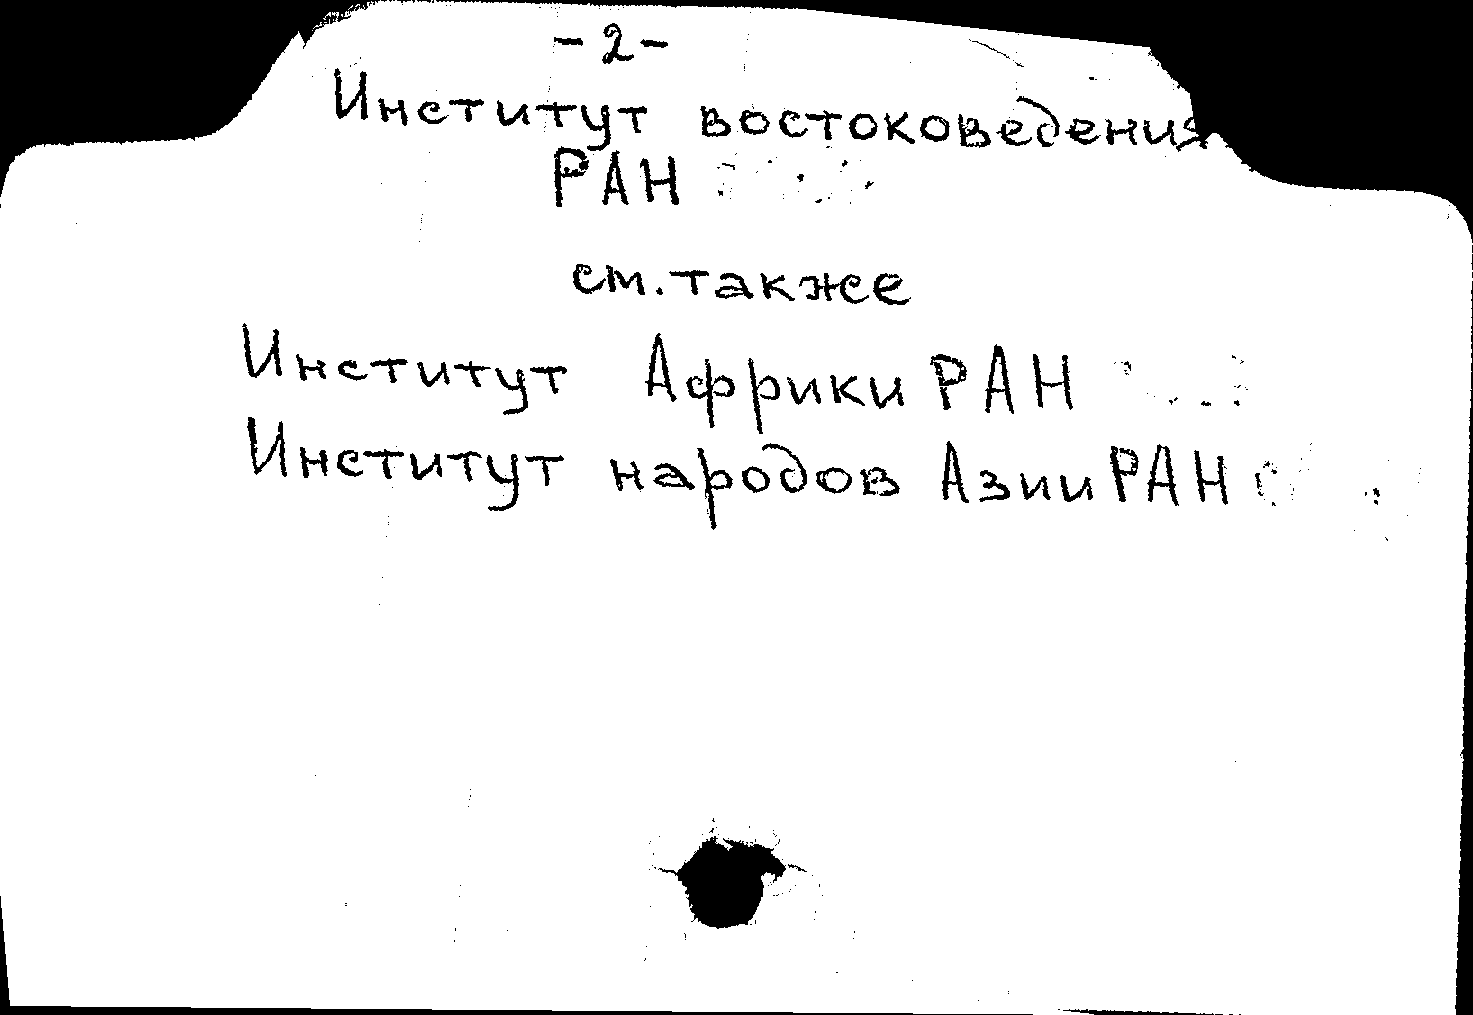 - 2 -
Институт востоковедения
РАН
см. также
Институт Африки РАН
Институт народов Азии РАН